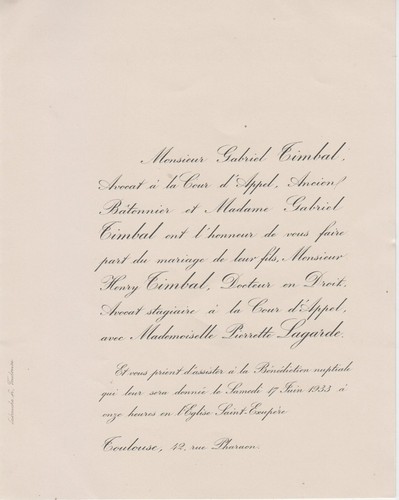 Monsieur Gabriel Timbal,
Avocat à la Cour d'Appel, Ancien
Bâtonnier et Madame Gabriel
Timbal ont l'honneur de vous faire
part du mariage de leur fils, Monsieur
Henry Timbal, Docteur en Droit,
Avocat stagiaire à la Cour d'Appel,
avec Mademoiselle Pierrette Lagarde.
Et vous prient d'assister à la Bénédiction nuptiale
qui leur sera donnée le Samedi 17 Juin 1933 à
onze heures en l'Eglise Saint-Exupère.
Toulouse, 42, rue Pharaon.